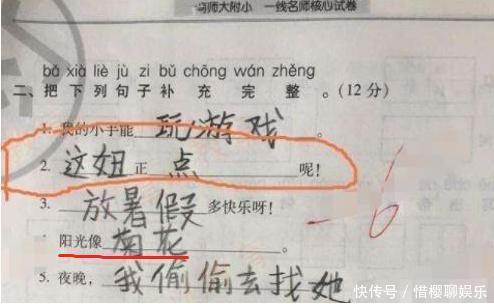 湾师大附小 一线名师核心试卷
bǎ xià liè jù zi bǔ chōng wán zhěng
二、把下列句子补充完整。(12分)
1. 我的小手能玩游戏。
2. 这妞正点呢!
3. 放暑假多快乐呀!
阳光像菊花。
5. 夜晚,我偷偷去找她
-6
快传号/惜樱聊娱乐